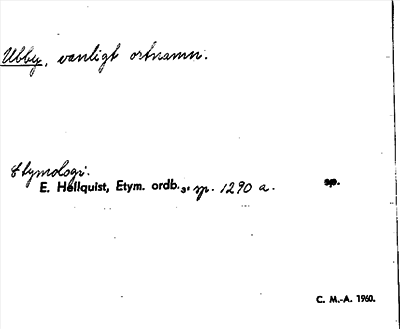 Ubby, vanligt ortnamn.
Etymologi.
E. Hellquist, Etym. ordb.³, sp. 1290 a. sp.
C. M.-A. 1960.